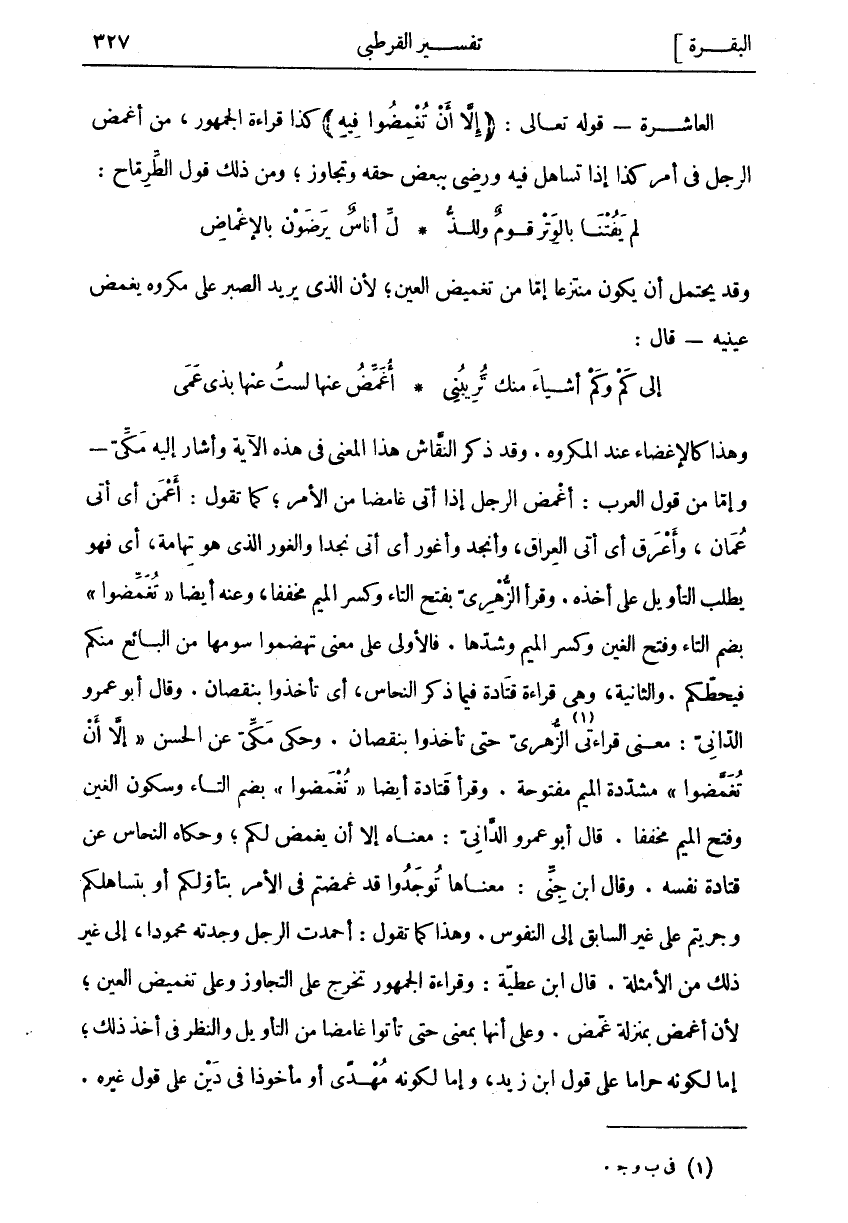 البقـــرة ] تفســـير القرطبى ٣٢٧
العاشـــرة — قوله تعـالى : ﴿إِلَّا أَنْ تُغْمِضُوا فِيهِ﴾ كذا قراءة الجمهور ، من أغمض
الرجل فى أمر كذا إذا تساهل فيه ورضى ببعض حقه وتجاوز ؛ ومن ذلك قول الطِّرِمّاح :
لم يَفُتْنَـا بالوَتْر قـومٌ وللـذُّ * لِّ أناسٌ يَرضَوْن بالإغْماضِ
وقد يحتمل أن يكون منتزعا إمّا من تغميض العين؛ لأن الذى يريد الصبر على مكروه يغمض
عينيه — قال :
إلى كَمْ وكَمْ أشـياءَ منك تُرِيبُنِى * أُغَمِّضُ عنها لستُ عنها بذى عَمَى
وهذا كالإغضاء عند المكروه . وقد ذكر النقّاش هذا المعنى فى هذه الآية وأشار إليه مَكِّىّ —
وإمّا من قول العرب : أغْمض الرجل إذا أتى غامضا من الأمر ؛ كما تقول : أَعْمَن أى أتى
عُمَان ، وأَعْرَق أى أتى العِراق، وأنجد وأغور أى أتى نجدا والغور الذى هو تِهامة، أى فهو
يطلب التأويل على أخذه . وقرأ الزُّهْرِىّ بفتح التاء وكسر الميم مخففا، وعنه أيضا « تُغَمِّضوا »
بضم التاء وفتح الغين وكسر الميم وشدّها . فالأولى على معنى تهضموا سومها من البـائع منكم
فيحطّكم . والثانية، وهى قراءة قتادة فيما ذكر النحاس، أى تأخذوا بنقصان . وقال أبو عمرو
الدّانِىّ : معـنى قراءتى الزُّهرىّ (١) حتى تأخذوا بنقصان . وحكى مَكِّىّ عن الحسن « إلَّا أَنْ
تُغَمَّضوا » مشدّدة الميم مفتوحة . وقرأ قَتادة أيضا « تُغْمَضوا » بضم التـاء وسكون الغين
وفتح الميم مخففا . قال أبو عمرو الدَّانِىّ : معنـاه إلا أن يغمض لكم ؛ وحكاه النحاس عن
قتادة نفسه . وقال ابن جِنِّى : معنـاها تُوجَدُوا قد غمضتم فى الأمر بتأوّلكم أو بتساهلكم
وجريتم على غير السابق إلى النفوس . وهذا كما تقول : أحمدت الرجل وجدته محمودا ، إلى غير
ذلك من الأمثلة . قال ابن عطيّة : وقراءة الجمهور تخرج على التجاوز وعلى تغميض العين ؛
لأن أغمض بمنزلة غَمّض . وعلى أنها بمعنى حتى تأتوا غامضا من التأويل والنظر فى أخذ ذلك ؛
إما لكونه حراما على قول ابن زيد، وإما لكونه مُهْـدًى أو مأخوذا فى دَيْن على قول غيره .
(١) فى ب و جـ .